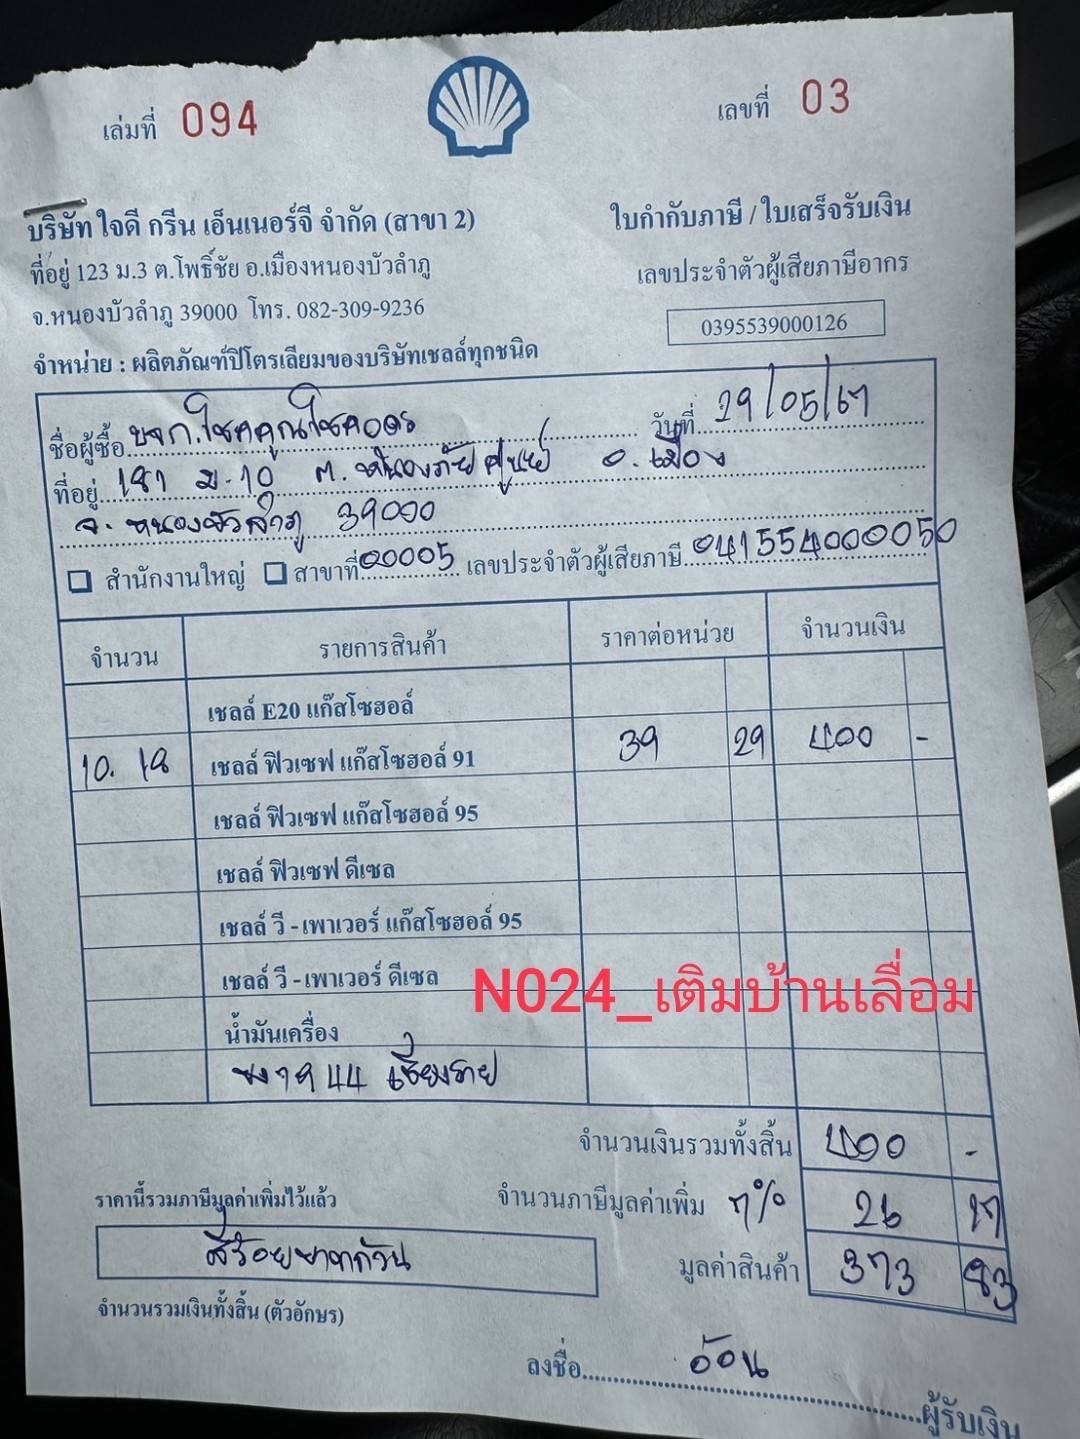 เล่มที่ 094
เลขที่ 03
บริษัท ใจดี กรีน เอ็นเนอร์จี จำกัด (สาขา 2)
ใบกำกับภาษี / ใบเสร็จรับเงิน
ที่อยู่ 123 ม.3 ต.โพธิ์ชัย อ.เมืองหนองบัวลำภู
เลขประจำตัวผู้เสียภาษีอากร
จ.หนองบัวลำภู 39000 โทร. 082-309-9236
0395539000126
จำหน่าย : ผลิตภัณฑ์ปิโตรเลียมของบริษัทเชลล์ทุกชนิด
ชื่อผู้ซื้อ บจก.โชคคูณโชคอดร วันที่ 29/05/67
ที่อยู่ 181 ม.10 ต. หนองภัยศูนย์ อ.เมือง
จ. หนองบัวลำภู 39000
สำนักงานใหญ่ สาขาที่ 00005 เลขประจำตัวผู้เสียภาษี 0415540000050
จำนวน รายการสินค้า ราคาต่อหน่วย จำนวนเงิน
เชลล์ E20 แก๊สโซฮอล์
10.18 เชลล์ ฟิวเซฟ แก๊สโซฮอล์ 91 39 29 400 -
เชลล์ ฟิวเซฟ แก๊สโซฮอล์ 95
เชลล์ ฟิวเซฟ ดีเซล
เชลล์ วี - เพาเวอร์ แก๊สโซฮอล์ 95
เชลล์ วี - เพาเวอร์ ดีเซล
N024_เติมบ้านเลื่อม
น้ำมันเครื่อง
เชียงราย
จำนวนเงินรวมทั้งสิ้น 400 -
ราคานี้รวมภาษีมูลค่าเพิ่มไว้แล้ว
จำนวนภาษีมูลค่าเพิ่ม 7% 26 17
สี่ร้อยบาทถ้วน
มูลค่าสินค้า 373 83
จำนวนรวมเงินทั้งสิ้น (ตัวอักษร)
ลงชื่อ อ้อน ผู้รับเงิน